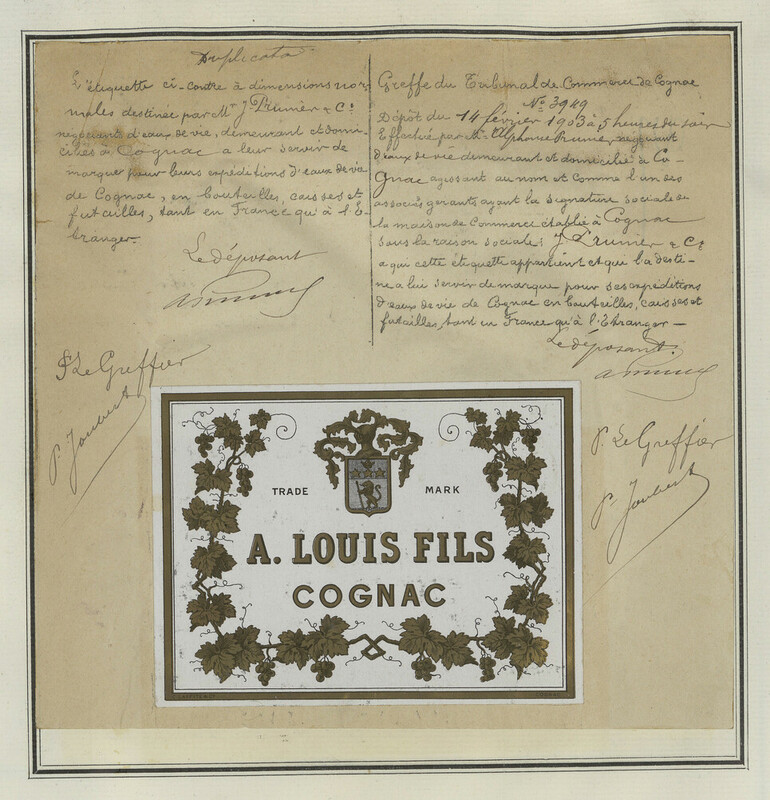 Duplicata
L'étiquette ci-contre à dimensions nor-
males destinée par Mr J. Prunier & Cie
négociants d'eaux de vie, demeurant et domi-
ciliés à Cognac a leur servir de
marque pour leurs expéditions d'eaux de vie
de Cognac, en bouteilles, caisses et
futailles, tant en France qu'à l'E-
tranger.
Le déposant
Greffe du Tribunal de Commerce de Cognac
No 3949
Dépôt du 14 février 1903 à 5 heures du soir
Effectué par Mr Alphonse Prunier, négociant
d'eaux de vie demeurant et domicilié à Co-
gnac agissant au nom et comme l'un des
associés gérants ayant la signature sociale de
la maison de Commerce établie à Cognac
sous la raison sociale: J. Prunier & Cie
a qui cette étiquette appartient et qui l'a desti-
née a lui servir de marque pour ses expéditions
d'eaux de vie de Cognac en bouteilles, caisses et
futailles, tant en France qu'à l'Etranger —
Le déposant.
P. Le Greffier
P. Joubert
P. Le Greffier
P. Joubert
TRADE MARK
A. LOUIS FILS
COGNAC